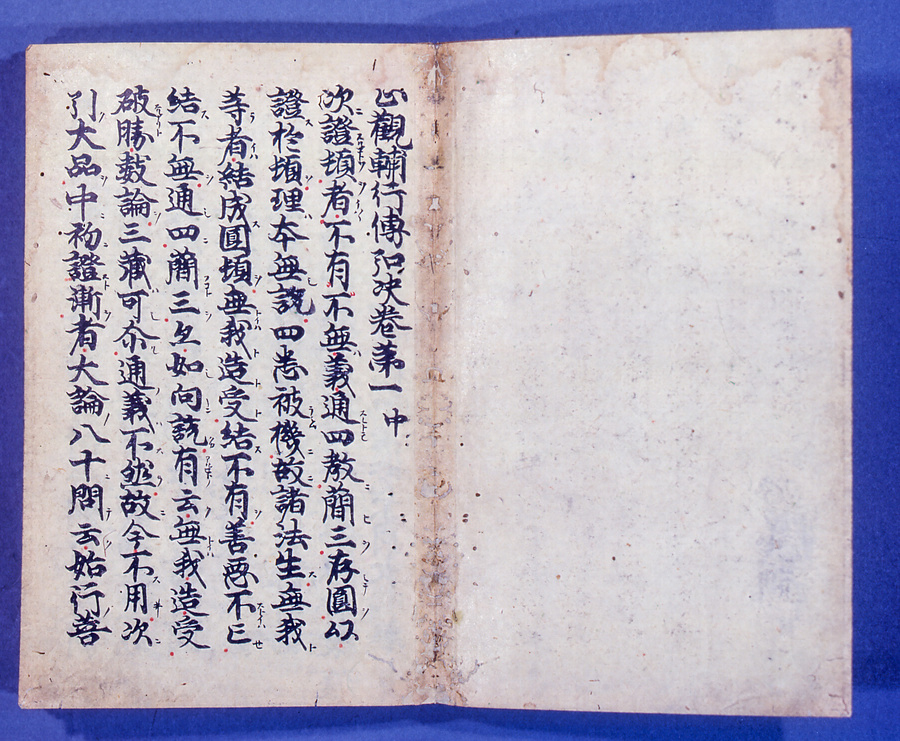 止觀輔行傳弘决卷第一 中
次證頓者不有不無義通四教蕳三存圓以
證於頓理本無說四悉被機故諸法生無我
等者結成圓頓無我造受結不有善惡不亡
結不無通四蕳三如向說有云無我造受
破勝數論三藏可尒通義不然故今不用次
引大品中初證漸者大論八十問云始行菩